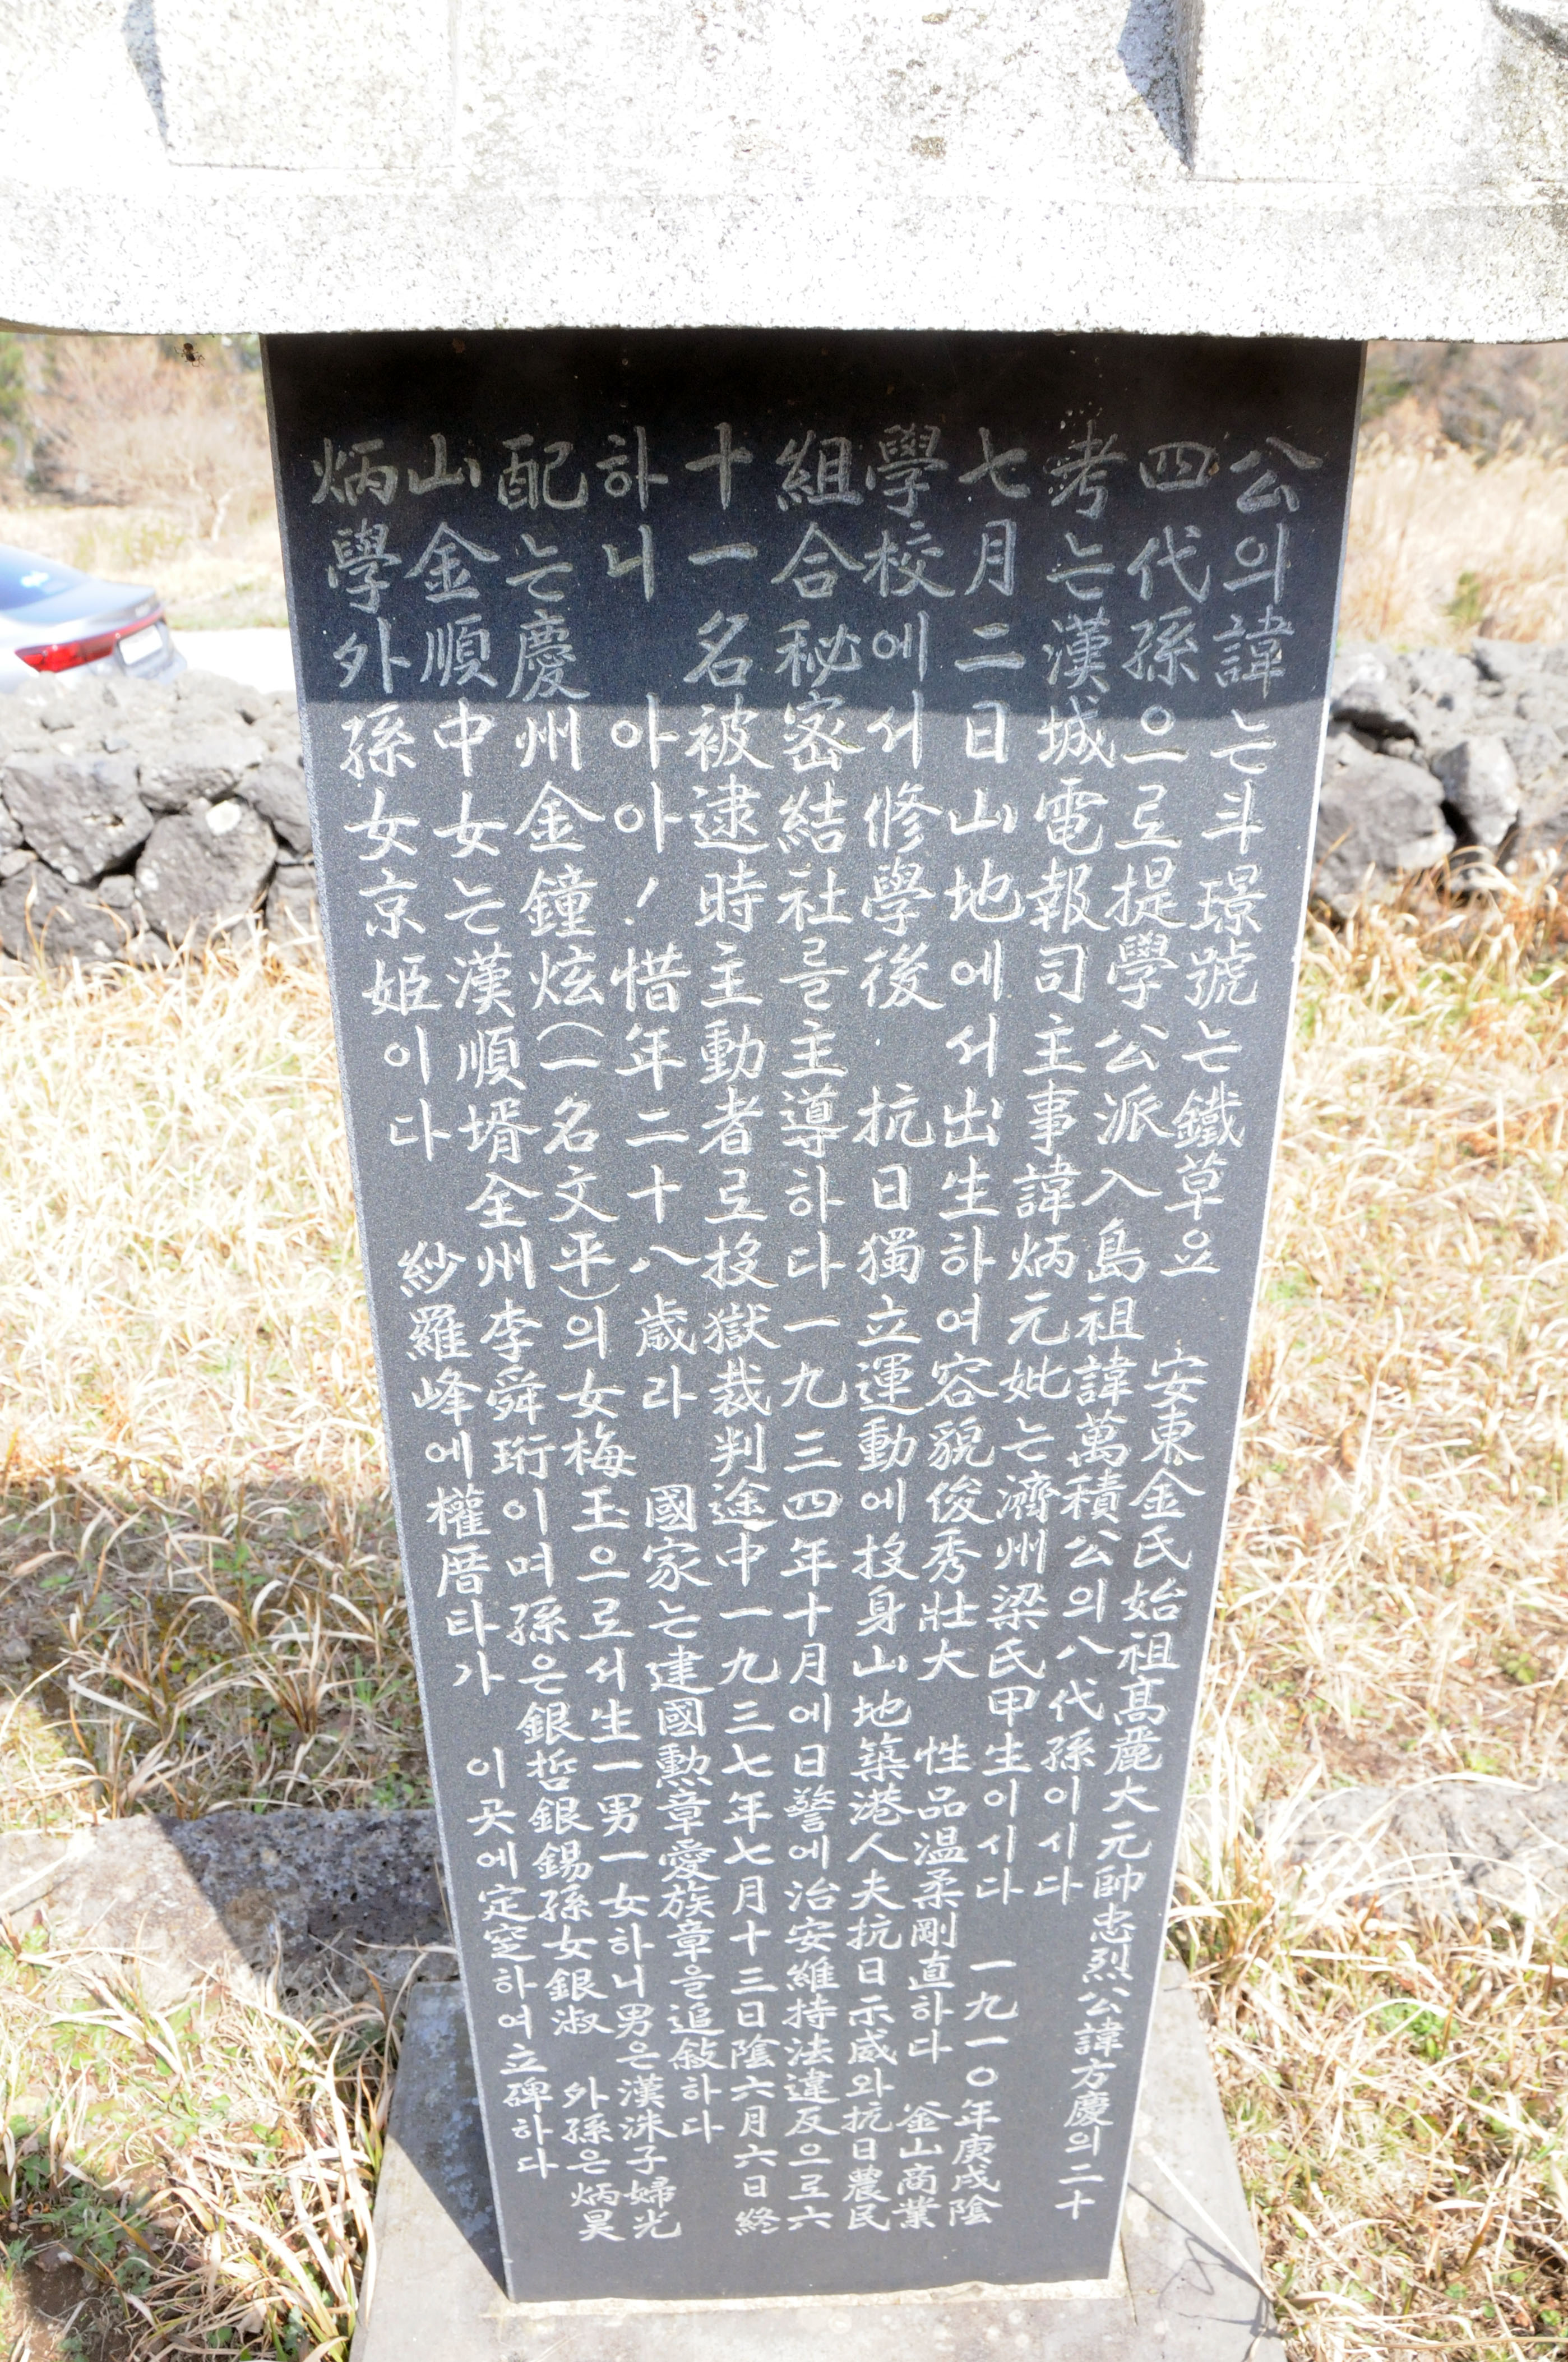 公의 諱는 斗璟 號는 鐵草요 安東金氏 始祖 高麗大元帥 忠烈公 諱方慶의 二十
四代孫으로 提學公派 入島祖 諱萬積公의 八代孫이시다
考는 漢城電報司主事 諱炳元 妣는 濟州梁氏 甲生이시다 一九一○年 庚戌 陰
七月二日 山地에서 出生하여 容貌俊秀壯大 性品温柔剛直하다 釜山商業
學校에서 修學後 抗日獨立運動에 投身 山地築港人夫 抗日示威와 抗日農民
組合 秘密結社를 主導하다 一九三四年十月에 日警에 治安維持法違反으로 六
十一名 被逮時 主動者로 投獄 裁判途中 一九三七年七月十三日 陰六月六日 終
하니 아아! 惜年二十八歲라 國家는 建國勳章愛族章을 追敍하다
配는 慶州金鐘炫(一名文平)의 女 梅玉으로서 生一男一女하니 男은 漢洙 子婦 光
山金順中 女는 漢順 壻 全州李舜珩이며 孫은 銀哲 銀錫 孫女 銀淑 外孫은 炳昊
炳學 外孫女 京姬이다 紗羅峰에 權厝타가 이곳에 定窆하여 立碑하다